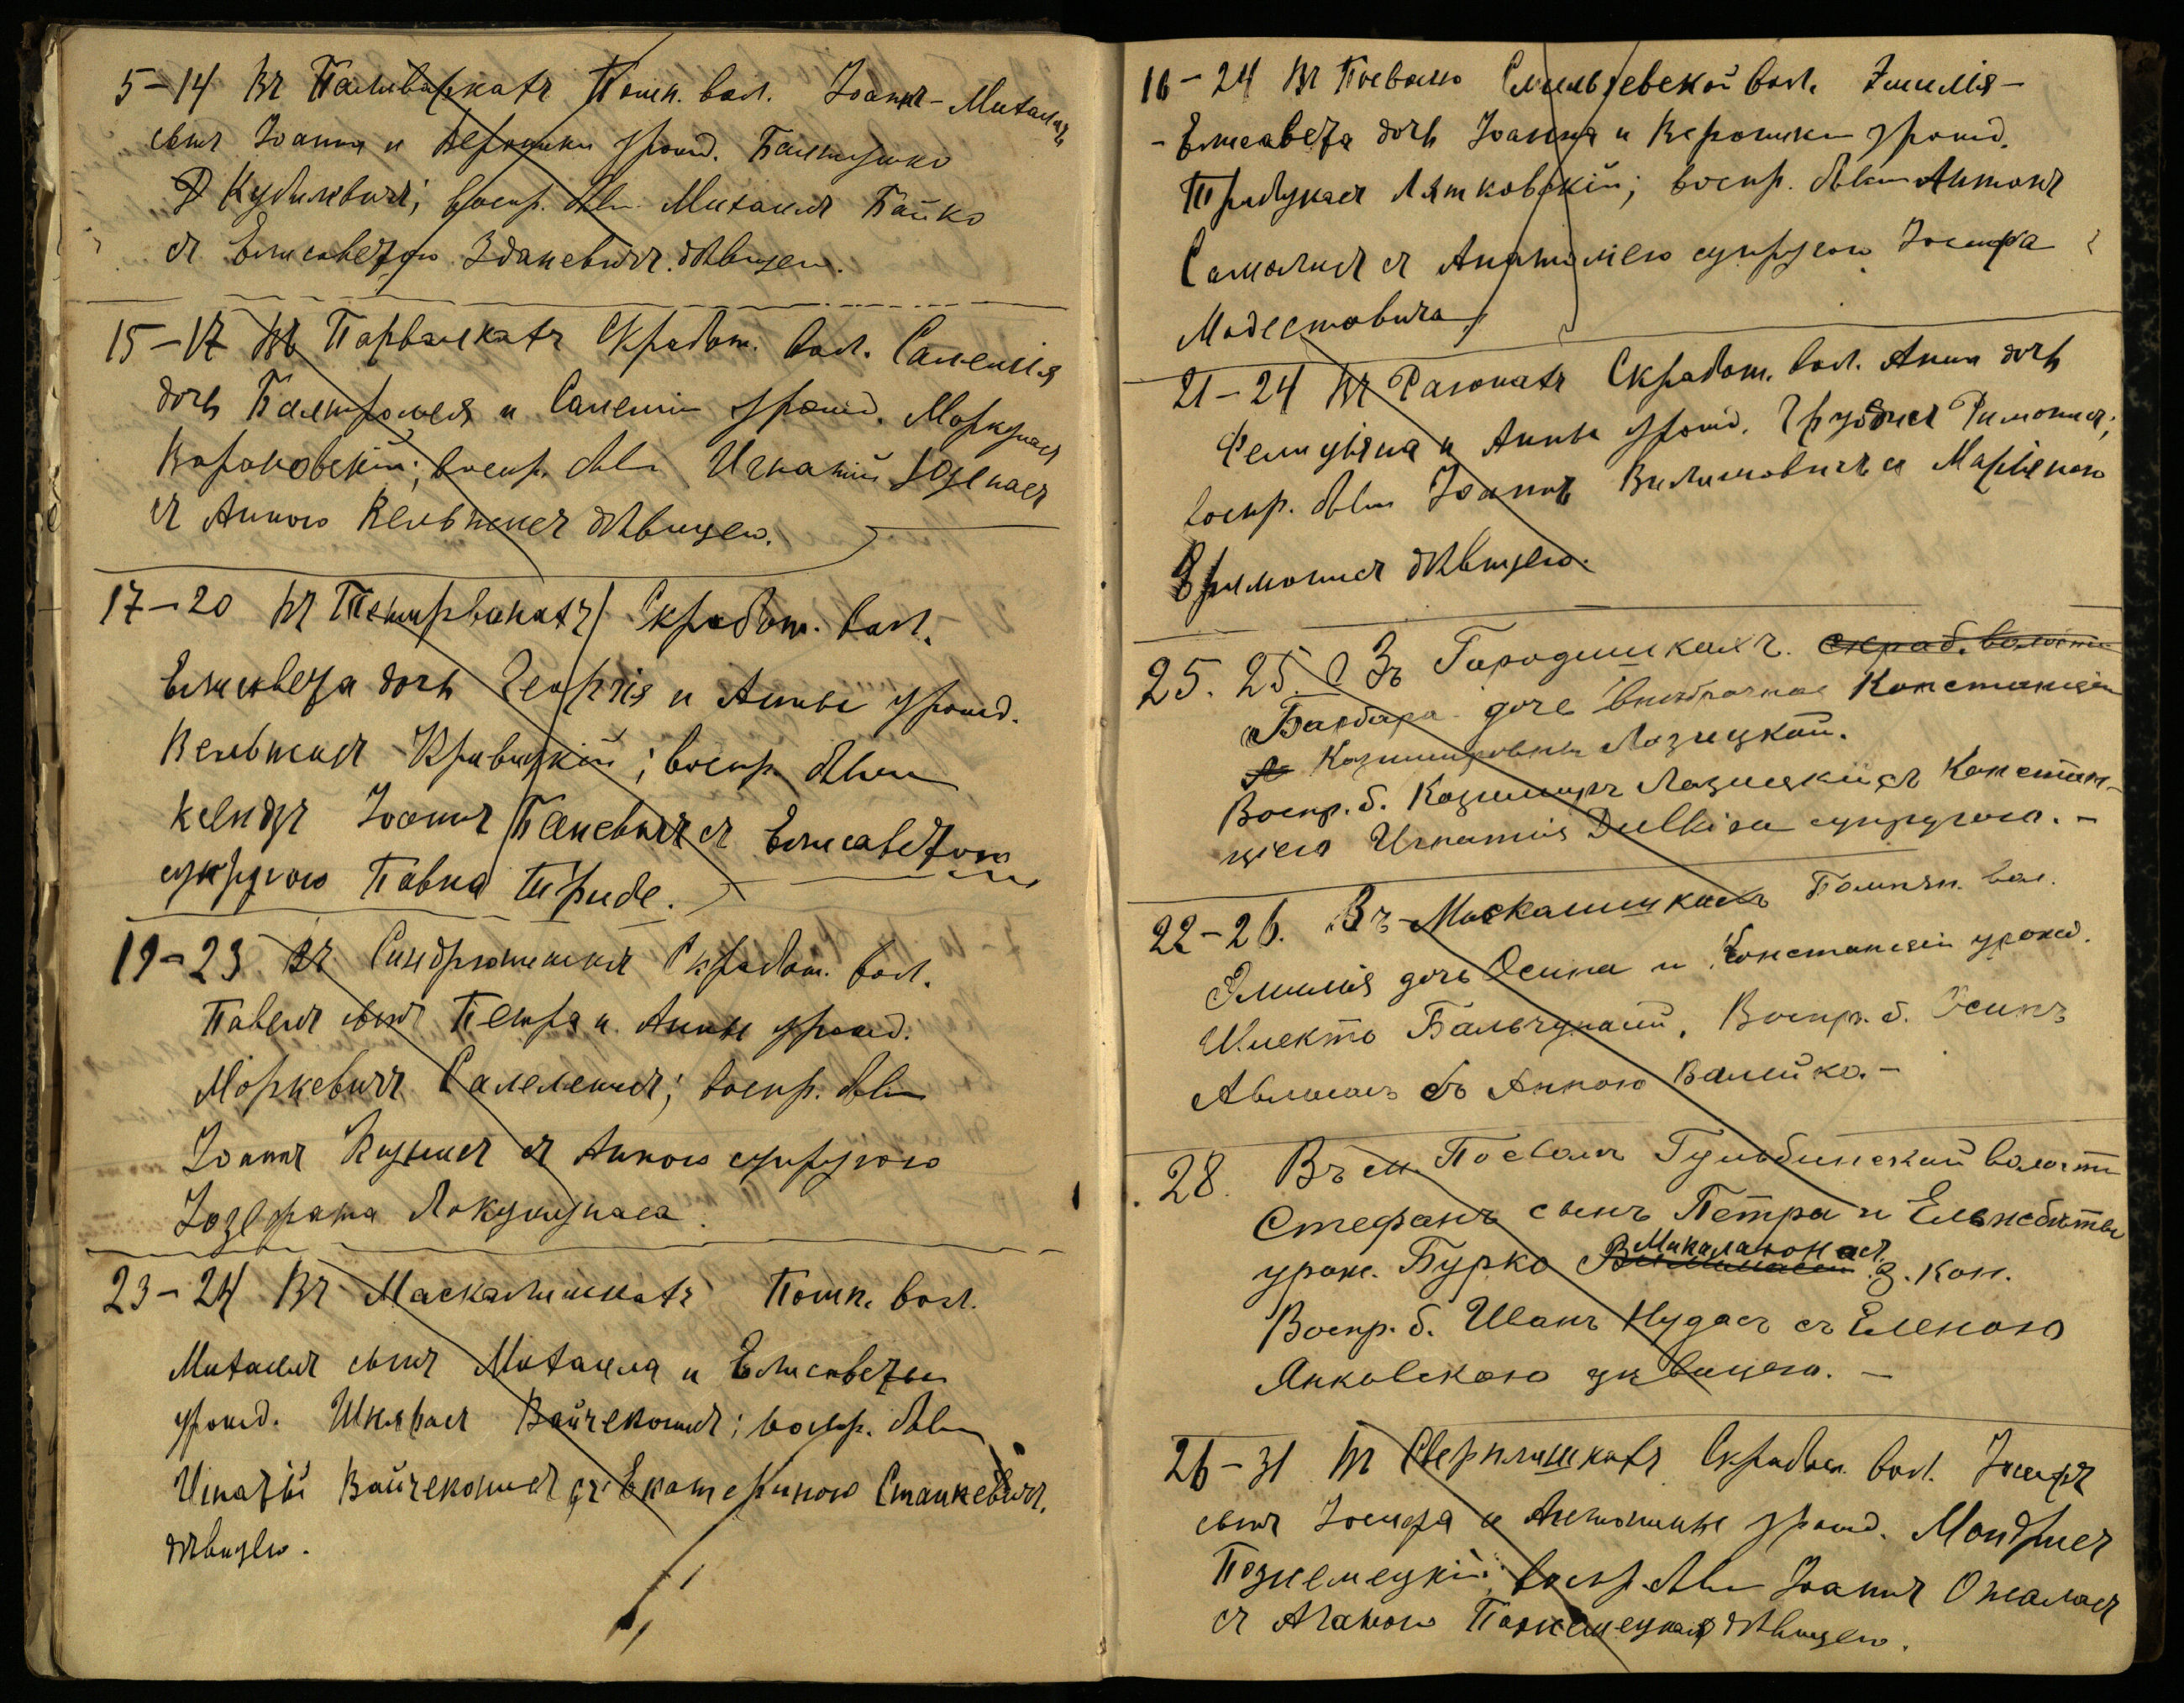 5–14 Въ Паливаркахъ Помп. вол. Іоаннъ-Михаилъ
сынъ Іоанна и Вероники урожд. Балтушко
Кубилевичъ; воспр. были Михаилъ Бойко
съ Елисаветою Зданевичъ дѣвицею.
15–17 Въ Парвалкахъ Скработ. вол. Саломея
дочь Балтромея и Саломеи урожд. Моркунасъ
Вороновскій; воспр. были Игнатій Юзенасъ
съ Анною Вельжисъ дѣвицею.
17–20 Въ Скработ. вол.
Елисавета дочь Георгія и Анны урожд.
Вельжисъ Кравицкій; воспр. были
ксендзъ Іоаннъ Баневичъ съ Елисаветою
супругою Павла Триде.
19–23 Въ Скработ. вол.
Павелъ сынъ Петра и Анны урожд.
Моркевичъ воспр. были
Іоаннъ съ Анною супругою
Іозефата Локуцунаса.
23–24 Въ Маскалишкахъ Помп. вол.
Михаилъ сынъ Михаила и Елисаветы
урожд. Шкярасъ Вайчеконисъ; воспр. были
Игнатій Вайчеконисъ съ Екатериною Станкевичъ,
дѣвицею.
16–24 Въ Посволѣ вол. Эмилія-
-Елисавета дочь Іоанна и Вероники урожд.
Лятковскій; воспр. были Антонъ
съ супругою Іосифа
Модестовича
21–24 Въ Скработ. вол. Анна дочь
Фелиціяна и Анны урожд. Грубисъ Римонисъ;
воспр. были Іоаннъ Вилимовичъ съ Маріяною
дѣвицею.
25. 25. Въ Городишкахъ. скраб. волости
Барбара дочь внебрачная Констанціи
Казимировны Лозицкой.
Воспр. б. Казимиръ Лозицкій съ Констан-
ціею Игнатія Dulkisa супругою. –
22–26. Въ Маскалишкахъ Помпян. вол.
Эмилія дочь Осипа и Констанціи урожд.
Шлекто Бальчунасъ, Воспр. б. Осипъ
съ Анною Валейко. –
28. Въ м. Посволь Гульбинской волости
Стефанъ сынъ Петра и Ельжбѣты
урож. Бурко Микалаюнасъ з. кон.
Воспр. б. Иванъ Нудасъ съ Еленою
Янковскою дѣвицею. –
26–31 Въ Сверплишкахъ Скработ. вол. Іосифъ
сынъ Іосифа и Антонины урожд. Мондрисъ
Познемецкій; воспр. были Іоаннъ Ожаласъ
съ Агатою дѣвицею.